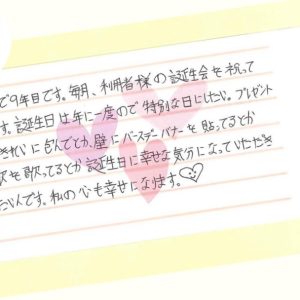 で9年目です。毎月、利用者様の誕生会を祝って
す。誕生日は年に一度ので特別な日にしたい。プレゼント
きれいに包んでとか、壁にバースデーバナーを貼ってるとか
歌を歌ってるとか誕生日に幸せな気分になっていただき
たいんです。私の心も幸せになります。